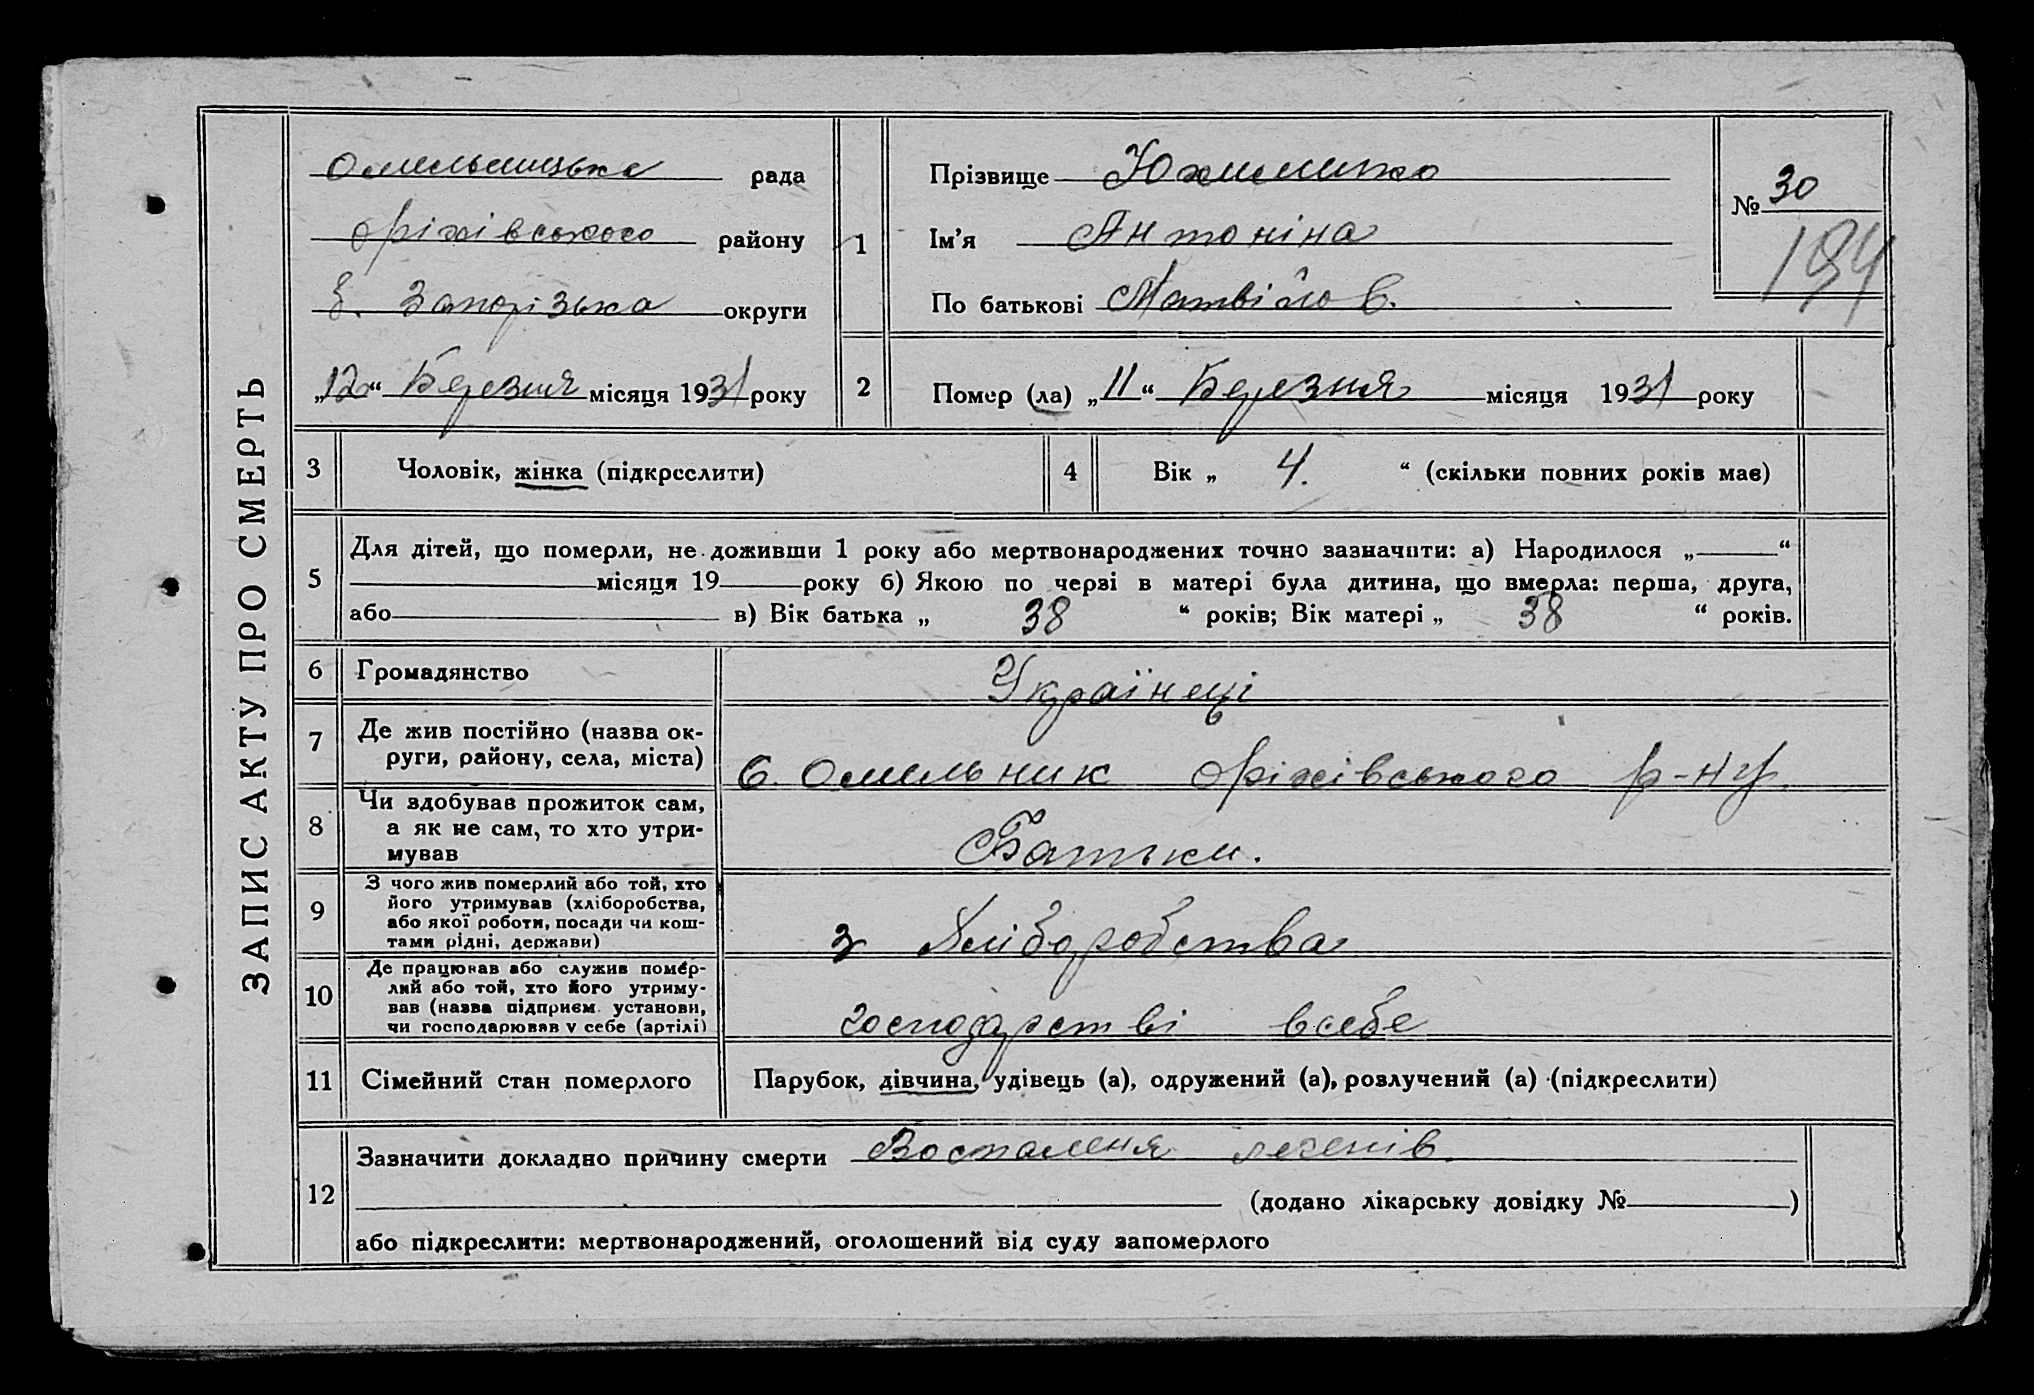 ЗАПИС АКТУ ПРО СМЕРТЬ
Омельницька рада
Оріхівського району
б. Запорізька округи
„12“ Березня місяця 1931 року
1
Прізвище Юхименко
Ім'я Антоніна
По батькові Матвійов.
№ 30
194
2
Помер (ла) „11“ Березня місяця 1931 року
3 Чоловік, жінка (підкреслити)
4 Вік „ 4. “ (скільки повних років має)
5
Для дітей, що померли, не доживши 1 року або мертвонароджених точно зазначити: а) Народилося „ “
місяця 19 року б) Якою по черзі в матері була дитина, що вмерла: перша, друга,
або в) Вік батька „ 38 “ років; Вік матері „ 38 “ років.
6 Громадянство Українеці
7
Де жив постійно (назва ок-
руги, району, села, міста)
С. Омельник Оріхівського р-ну.
8
Чи здобував прожиток сам,
а як не сам, то хто утри-
мував
Батьки.
9
З чого жив померлий або той, хто
його утримував (хліборобства,
або якої роботи, посади чи кош-
тами рідні, держави)
з Хліборобства
10
Де працював або служив помер-
лий або той, хто його утриму-
вав (назва підприєм. установи,
чи господарював у себе (артілі)
господарстві всебе
11 Сімейний стан померлого Парубок, дівчина, удівець (а), одружений (а), розлучений (а) (підкреслити)
12
Зазначити докладно причину смерти Воспаленя легенів.
(додано лікарську довідку № )
або підкреслити: мертвонароджений, оголошений від суду запомерлого